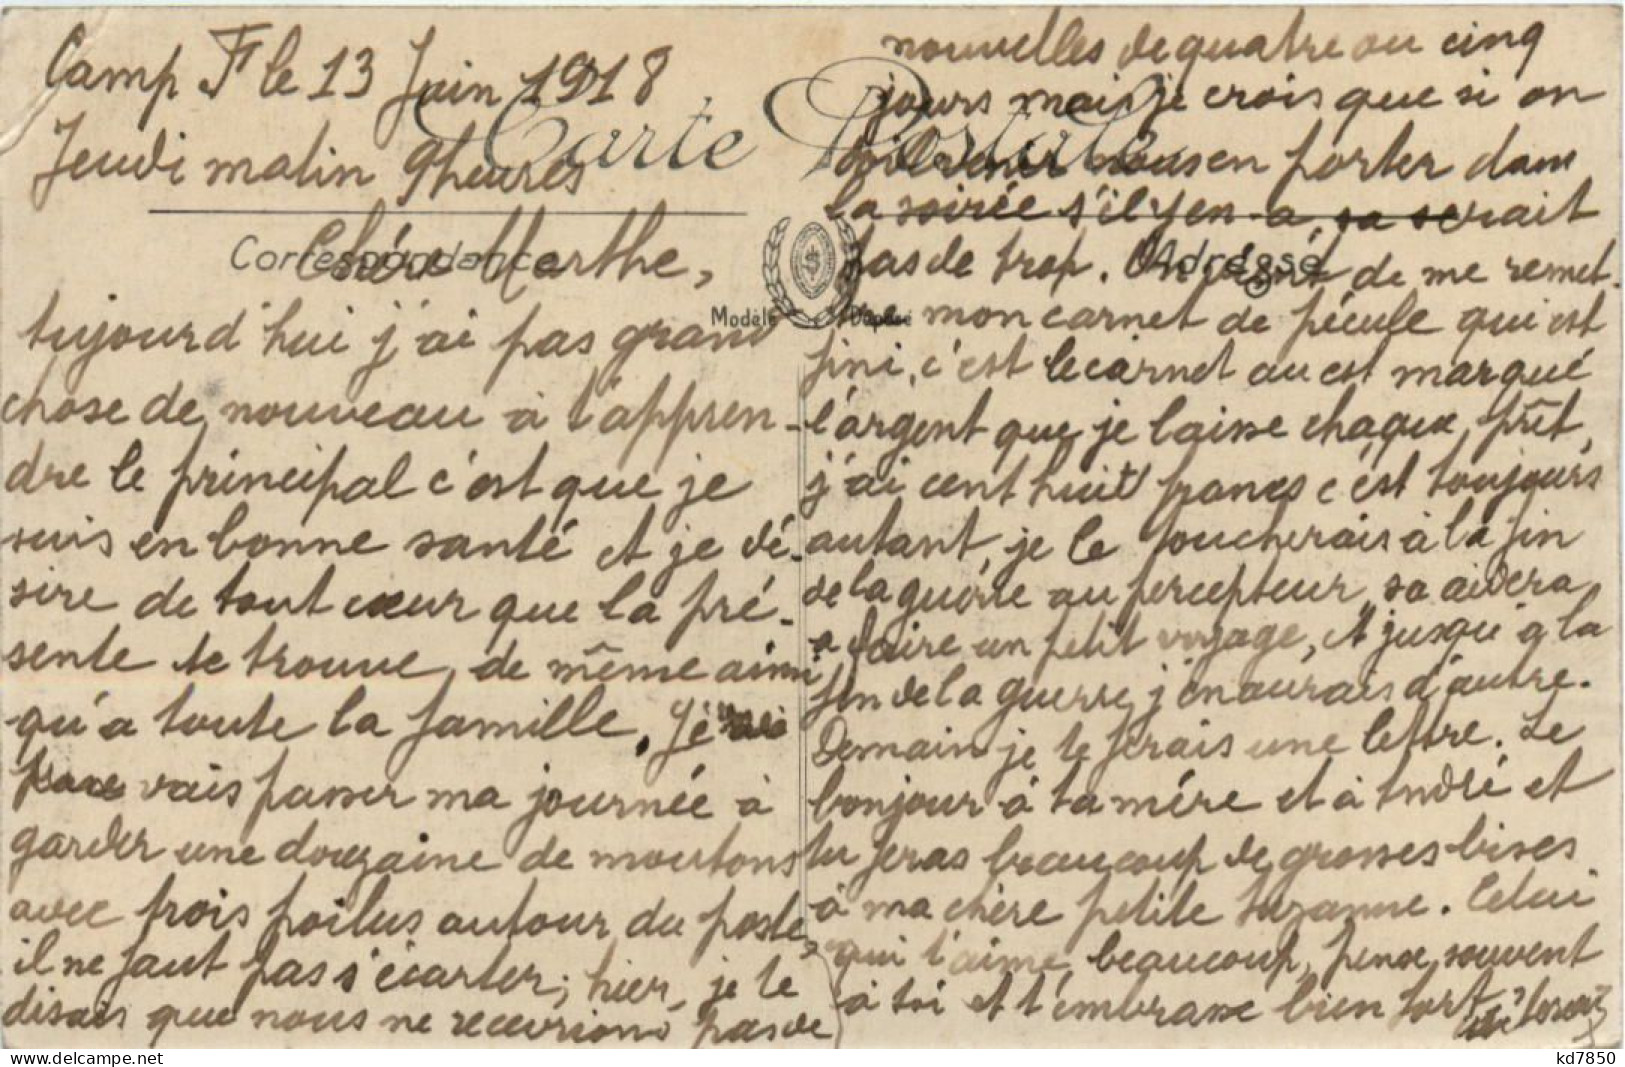 Camp F le 13 Juin 1918
Jeudi matin 9 heures
Carte Postale
Correspondance
Chère Marthe,
Modèle Déposé
Aujourd'hui j'ai pas grand
chose de nouveau à t'appren-
dre le principal c'est que je
suis en bonne santé et je dé-
sire de tout cœur que la pré-
sente te trouve de même ainsi
qu'a toute la famille. Je
vais passer ma journée à
garder une douzaine de moutons
avec trois poilus autour du poste,
il ne faut pas s'écarter; hier, je te
disais que nous ne recevrions pas de
nouvelles de quatre ou cinq
jours mais je crois que si on
doit venir nous en porter dans
la soirée s'il y en a, sa serait
pas de trop. On vient de me remet-
Adresse
tre mon carnet de pécule qui est
fini, c'est le carnet ou est marqué
l'argent que je laisse chaque prêt,
j'ai cent huit francs c'est toujours
autant, je le toucherais à la fin
de la guerre au percepteur, sa aidera
a faire un petit voyage, et jusqu'à la
fin de la guerre j'en aurais d'autre.
Demain je te ferais une lettre. Le
bonjour à ta mére et à André et
tu feras beaucoup de grosses bises
à ma chère petite Suzanne. Celui
qui t'aime beaucoup, pense souvent
à toi et t'embrasse bien fort
kd7850